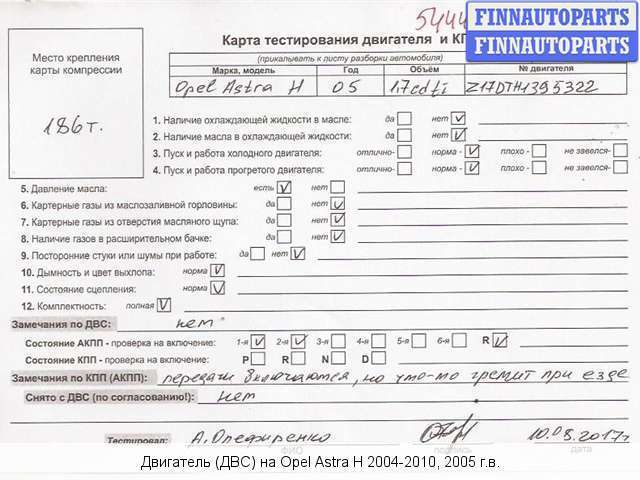 5444
FINNAUTOPARTS
FINNAUTOPARTS
Карта тестирования двигателя и КП
(прикалывать к листу разборки автомобиля)
Место крепления
карты компрессии
186 т.
Марка, модель Год Объём № двигателя
Opel Astra H 05 1.7cdti Z17DTH1395322
1. Наличие охлаждающей жидкости в масле: да нет V
2. Наличие масла в охлаждающей жидкости: да нет V
3. Пуск и работа холодного двигателя: отлично- норма - V плохо - не завелся-
4. Пуск и работа прогретого двигателя: отлично- норма - V плохо - не завелся-
5. Давление масла: есть V нет
6. Картерные газы из маслозаливной горловины: да нет V
7. Картерные газы из отверстия масляного щупа: да нет V
8. Наличие газов в расширительном бачке: да нет V
9. Посторонние стуки или шумы при работе: да нет V
10. Дымность и цвет выхлопа: норма V
11. Состояние сцепления: норма V
12. Комплектность: полная V
Замечания по ДВС: нет
Состояние АКПП - проверка на включение: 1-я V 2-я V 3-я 4-я 5-я 6-я R V
Состояние КПП - проверка на включение: P R N D
Замечания по КПП (АКПП): передачи включаются, но что-то гремит при езде
Снято с ДВС (по согласованию!): нет
Тестировал: А. Олефиренко 10.08.2017г.
ФИО подпись дата
Двигатель (ДВС) на Opel Astra H 2004-2010, 2005 г.в.